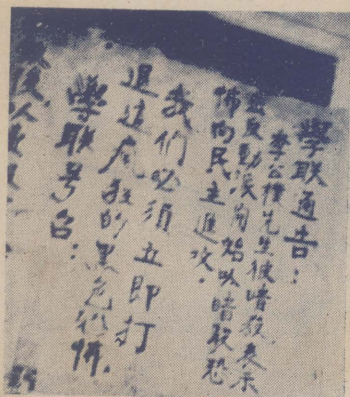 學联通告：
李公樸先生被暗殺，表示
着反動派開始以暗殺恐
怖向民主進攻．
我们必须立即打
退這疯狂的黑色恐怖．
學联号召：
後，以